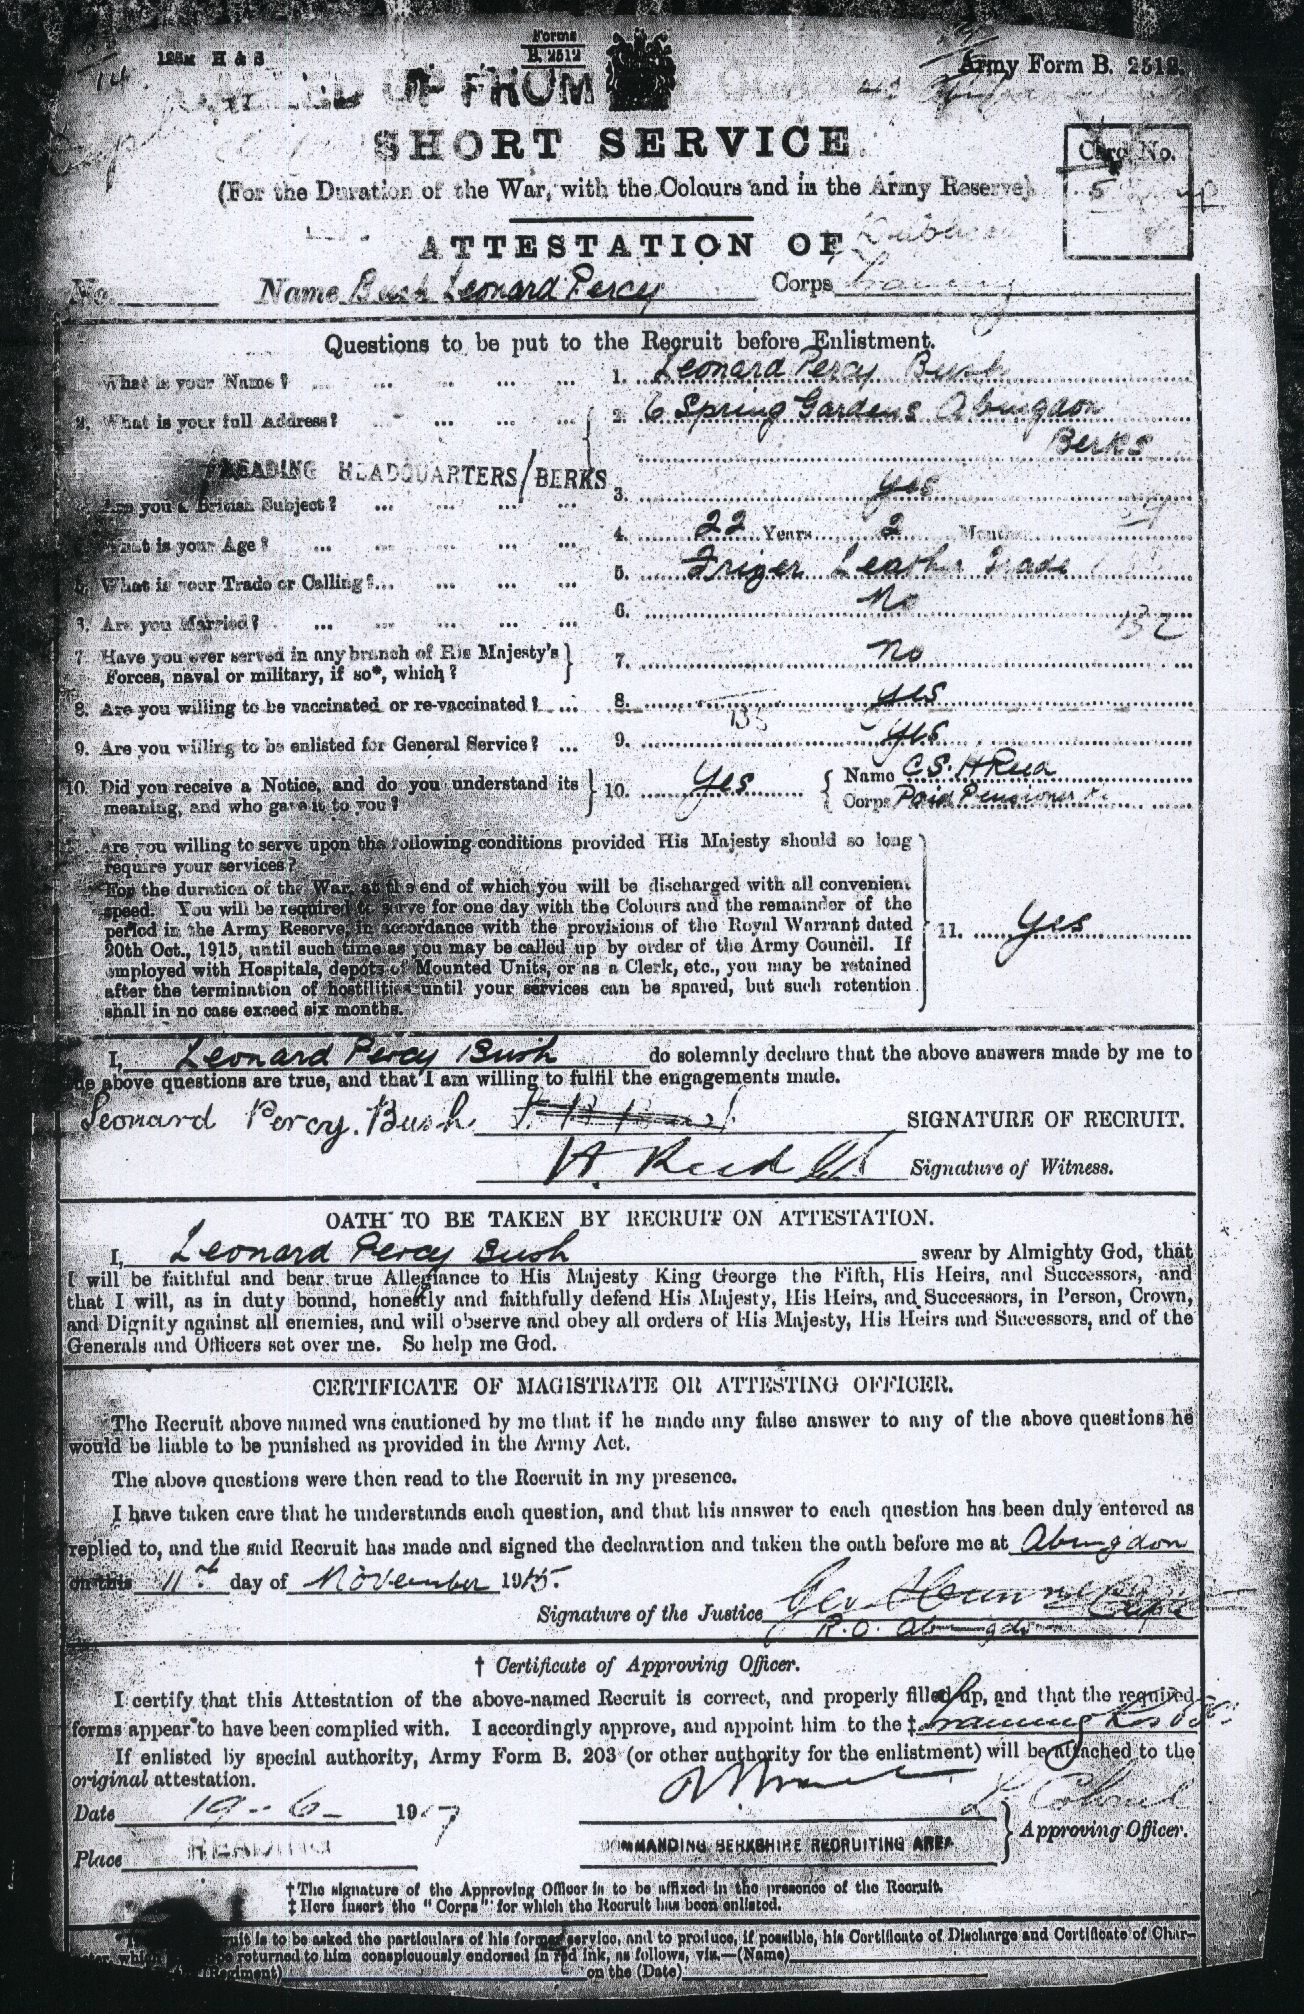 Forms
B. 2512
125M H & S
Army Form B. 2512.
UP FROM
SHORT SERVICE
Card No.
(For the Duration of the War, with the Colours and in the Army Reserve)
ATTESTATION OF
No. Name Bush Leonard Percy Corps Training
Questions to be put to the Recruit before Enlistment.
What is your Name? 1. Leonard Percy Bush
2. What is your full Address? 2. 6 Spring Gardens Abingdon
Berks
READING HEADQUARTERS/BERKS
Are you a British Subject? 3. yes
What is your Age? 4. 22 Years 2 Months
5. What is your Trade or Calling? 5. Frizer Leather Trade
Are you Married? 6. No
132
7. Have you ever served in any branch of His Majesty's
Forces, naval or military, if so*, which? 7. No
8. Are you willing to be vaccinated or re-vaccinated? 8. yes
135
9. Are you willing to be enlisted for General Service? 9. yes
10. Did you receive a Notice, and do you understand its
meaning, and who gave it to you? 10. Yes Name C.S. H Reed
Corps Paid Pensioner
Are you willing to serve upon the following conditions provided His Majesty should so long
require your services?
For the duration of the War, at the end of which you will be discharged with all convenient
speed. You will be required to serve for one day with the Colours and the remainder of the
period in the Army Reserve, in accordance with the provisions of the Royal Warrant dated
20th Oct., 1915, until such time as you may be called up by order of the Army Council. If
employed with Hospitals, depots of Mounted Units, or as a Clerk, etc., you may be retained
after the termination of hostilities until your services can be spared, but such retention
shall in no case exceed six months.
11. Yes
I, Leonard Percy Bush do solemnly declare that the above answers made by me to
the above questions are true, and that I am willing to fulfil the engagements made.
Leonard Percy. Bush SIGNATURE OF RECRUIT.
H. Reed Signature of Witness.
OATH TO BE TAKEN BY RECRUIT ON ATTESTATION.
I, Leonard Percy Bush swear by Almighty God, that
I will be faithful and bear true Allegiance to His Majesty King George the Fifth, His Heirs, and Successors, and
that I will, as in duty bound, honestly and faithfully defend His Majesty, His Heirs, and Successors, in Person, Crown,
and Dignity against all enemies, and will observe and obey all orders of His Majesty, His Heirs and Successors, and of the
Generals and Officers set over me. So help me God.
CERTIFICATE OF MAGISTRATE OR ATTESTING OFFICER.
The Recruit above named was cautioned by me that if he made any false answer to any of the above questions he
would be liable to be punished as provided in the Army Act.
The above questions were then read to the Recruit in my presence.
I have taken care that he understands each question, and that his answer to each question has been duly entered as
replied to, and the said Recruit has made and signed the declaration and taken the oath before me at Abingdon
on this 11th day of November 1915.
Signature of the Justice
R.O. Abingdon
† Certificate of Approving Officer.
I certify that this Attestation of the above-named Recruit is correct, and properly filled up, and that the required
forms appear to have been complied with. I accordingly approve, and appoint him to the ‡ Training
If enlisted by special authority, Army Form B. 203 (or other authority for the enlistment) will be attached to the
original attestation.
Lt Colonel
Date 19-6- 1917
Approving Officer.
COMMANDING BERKSHIRE RECRUITING AREA
Place READING
† The signature of the Approving Officer is to be affixed in the presence of the Recruit.
‡ Here insert the "Corps" for which the Recruit has been enlisted.
is to be asked the particulars of his former service, and to produce, if possible, his Certificate of Discharge and Certificate of Char-
returned to him conspicuously endorsed in red ink, as follows, viz.—(Name)
(Regiment) on the (Date)